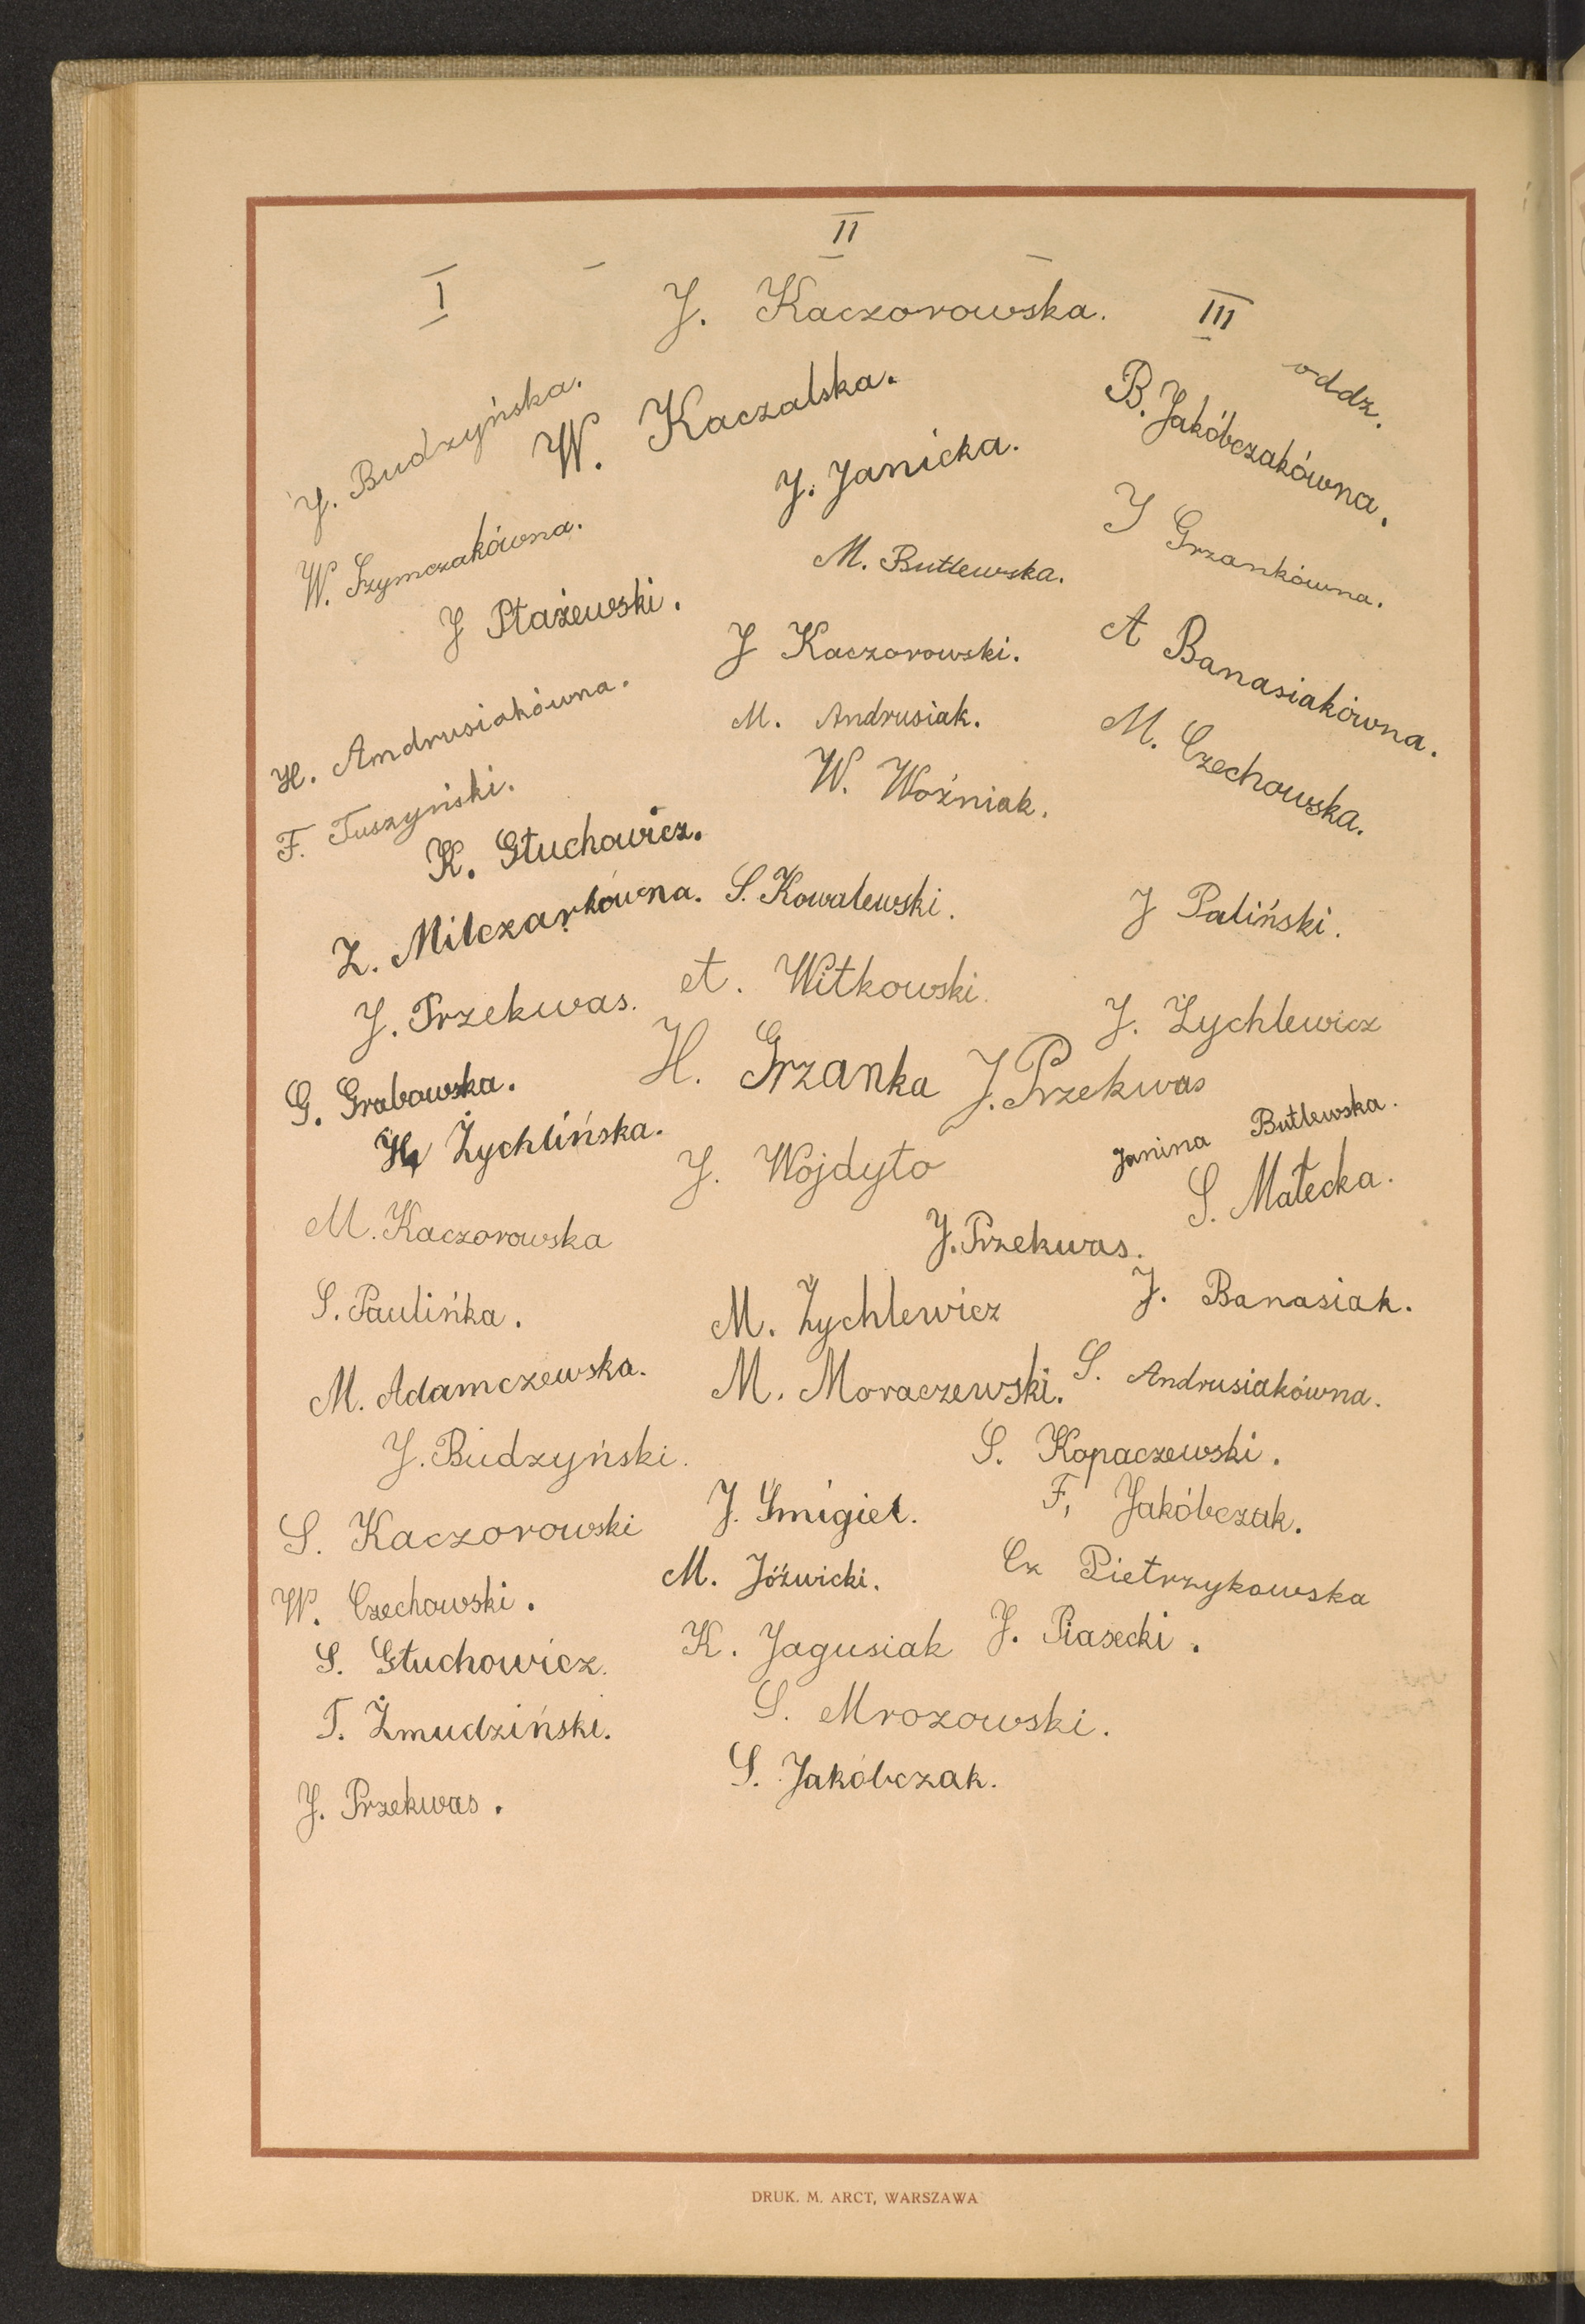 I - II - III oddz.
J. Kaczorowska.
J. Budzyńska.
W. Kaczalska.
J. Janicka.
B. Jakóbczakówna.
W. Szymczakówna.
M. Butlewska.
J Grzankówna.
J Ptażewski.
J Kaczorowski.
A Banasiakówna.
H. Andrusiakówna.
M. Andrusiak.
M. Czechowska.
F. Tuszyński.
W. Woźniak.
K. Głuchowicz.
Z. Milczarkówna.
S. Kowalewski.
J Paliński.
J. Przekwas.
A. Witkowski.
J. Żychlewicz
G. Grabowska.
H. Grzanka
J. Przekwas
H Żychlińska.
J. Wojdyło
Janina Butlewska.
S. Małecka.
M. Kaczorowska
J. Przekwas.
S. Paulińka.
M. Żychlewicz
J. Banasiak.
M. Adamczewska.
M. Moraczewski.
S. Andrusiakówna.
J. Budzyński.
S. Kopaczewski.
S. Kaczorowski
J. Śmigiel.
F. Jakóbczak.
W. Czechowski.
M. Jóźwicki.
Cz Pietrzykowska
S. Głuchowicz.
K. Jagusiak
J. Piasecki.
T. Żmudziński.
S. Mrozowski.
J. Przekwas.
S. Jakóbczak.
DRUK. M. ARCT, WARSZAWA